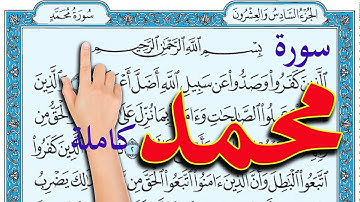 الجزء السادس والعشرون
سورة محمد
بسم الله الرحمن الرحيم
سورة
محمد
كاملة
الذين كفروا وصدوا عن سبيل الله أضل أعمـ والذين
الصلحت وءامنوا بما نزل الحق من
كفروا
اتبعوا البطل وأن الذين ءامنوا اتبعوا الحق من ربـ ذلك يضرب